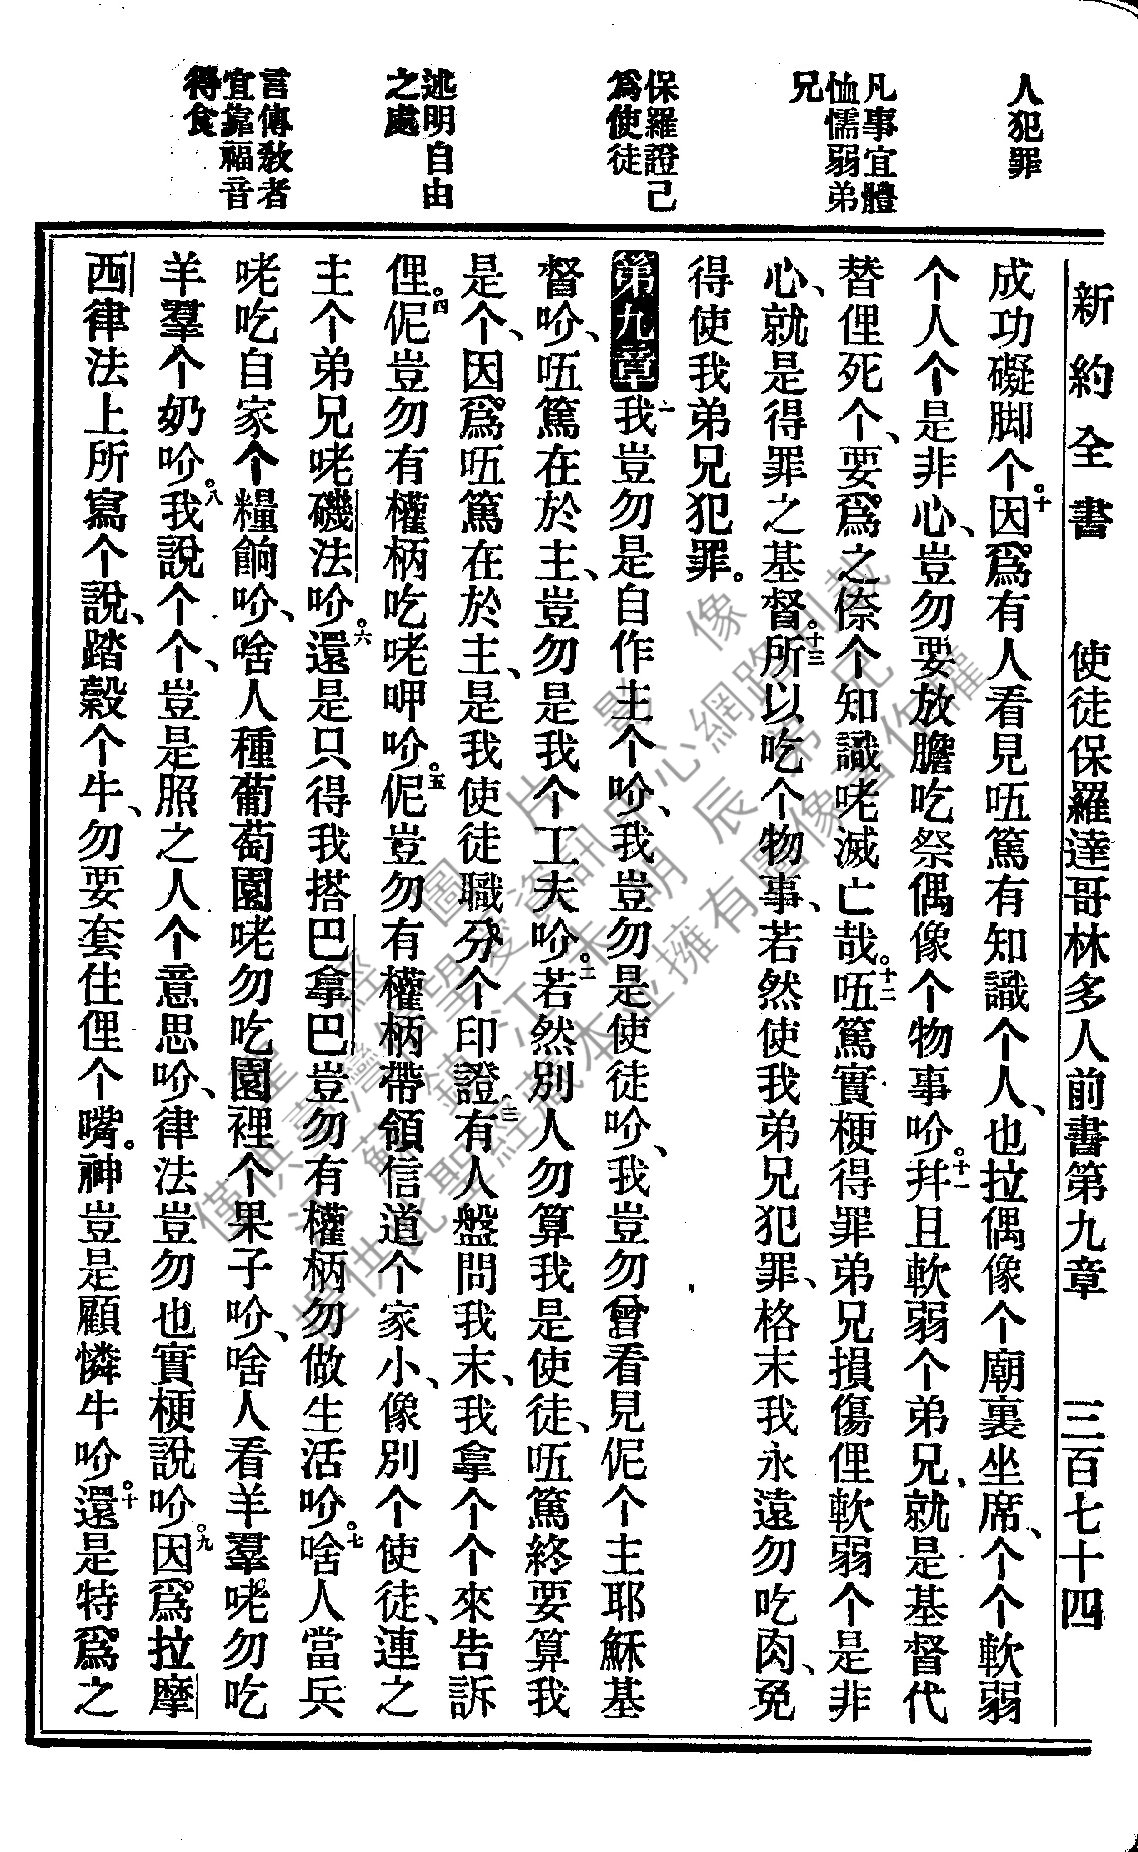 人犯罪
凡事宜體
恤懦弱弟
兄
保羅證己
爲使徒
述明自由
之處
言傳教者
宜靠福音
得食
新約全書 使徒保羅達哥林多人前書第九章 三百七十四
成功礙脚个。十因爲有人看見㕶篤有知識个人、也拉偶像个廟裏坐席、个个軟弱
个人个是非心、豈勿要放膽吃祭偶像个物事吤。十一幷且軟弱个弟兄、就是基督代
替俚死个、要爲之㑚个知識咾滅亡哉。十二㕶篤實梗得罪弟兄損傷俚軟弱个是非
心、就是得罪之基督。十三所以吃个物事、若然使我弟兄犯罪、格末我永遠勿吃肉、免
得使我弟兄犯罪。
第九章一我豈勿是自作主个吤、我豈勿是使徒吤、我豈勿曾看見伲个主耶穌基
督吤、㕶篤在於主、豈勿是我个工夫吤。二若然別人勿算我是使徒、㕶篤終要算我
是个、因爲㕶篤在於主、是我使徒職分个印證。三有人盤問我末、我拿个个來告訴
俚。四伲豈勿有權柄吃咾呷吤。五伲豈勿有權柄帶領信道个家小、像別个使徒、連之
主个弟兄咾磯法吤。六還是只得我搭巴拿巴豈勿有權柄勿做生活吤。七啥人當兵
咾吃自家个糧餉吤、啥人種葡萄園咾勿吃園裡个果子吤、啥人看羊羣咾勿吃
羊羣个奶吤。八我說个个、豈是照之人个意思吤、律法豈勿也實梗說吤。九因爲拉摩
西律法上所寫个說、踏穀个牛、勿要套住俚个嘴。神豈是顧憐牛吤。十還是特爲之